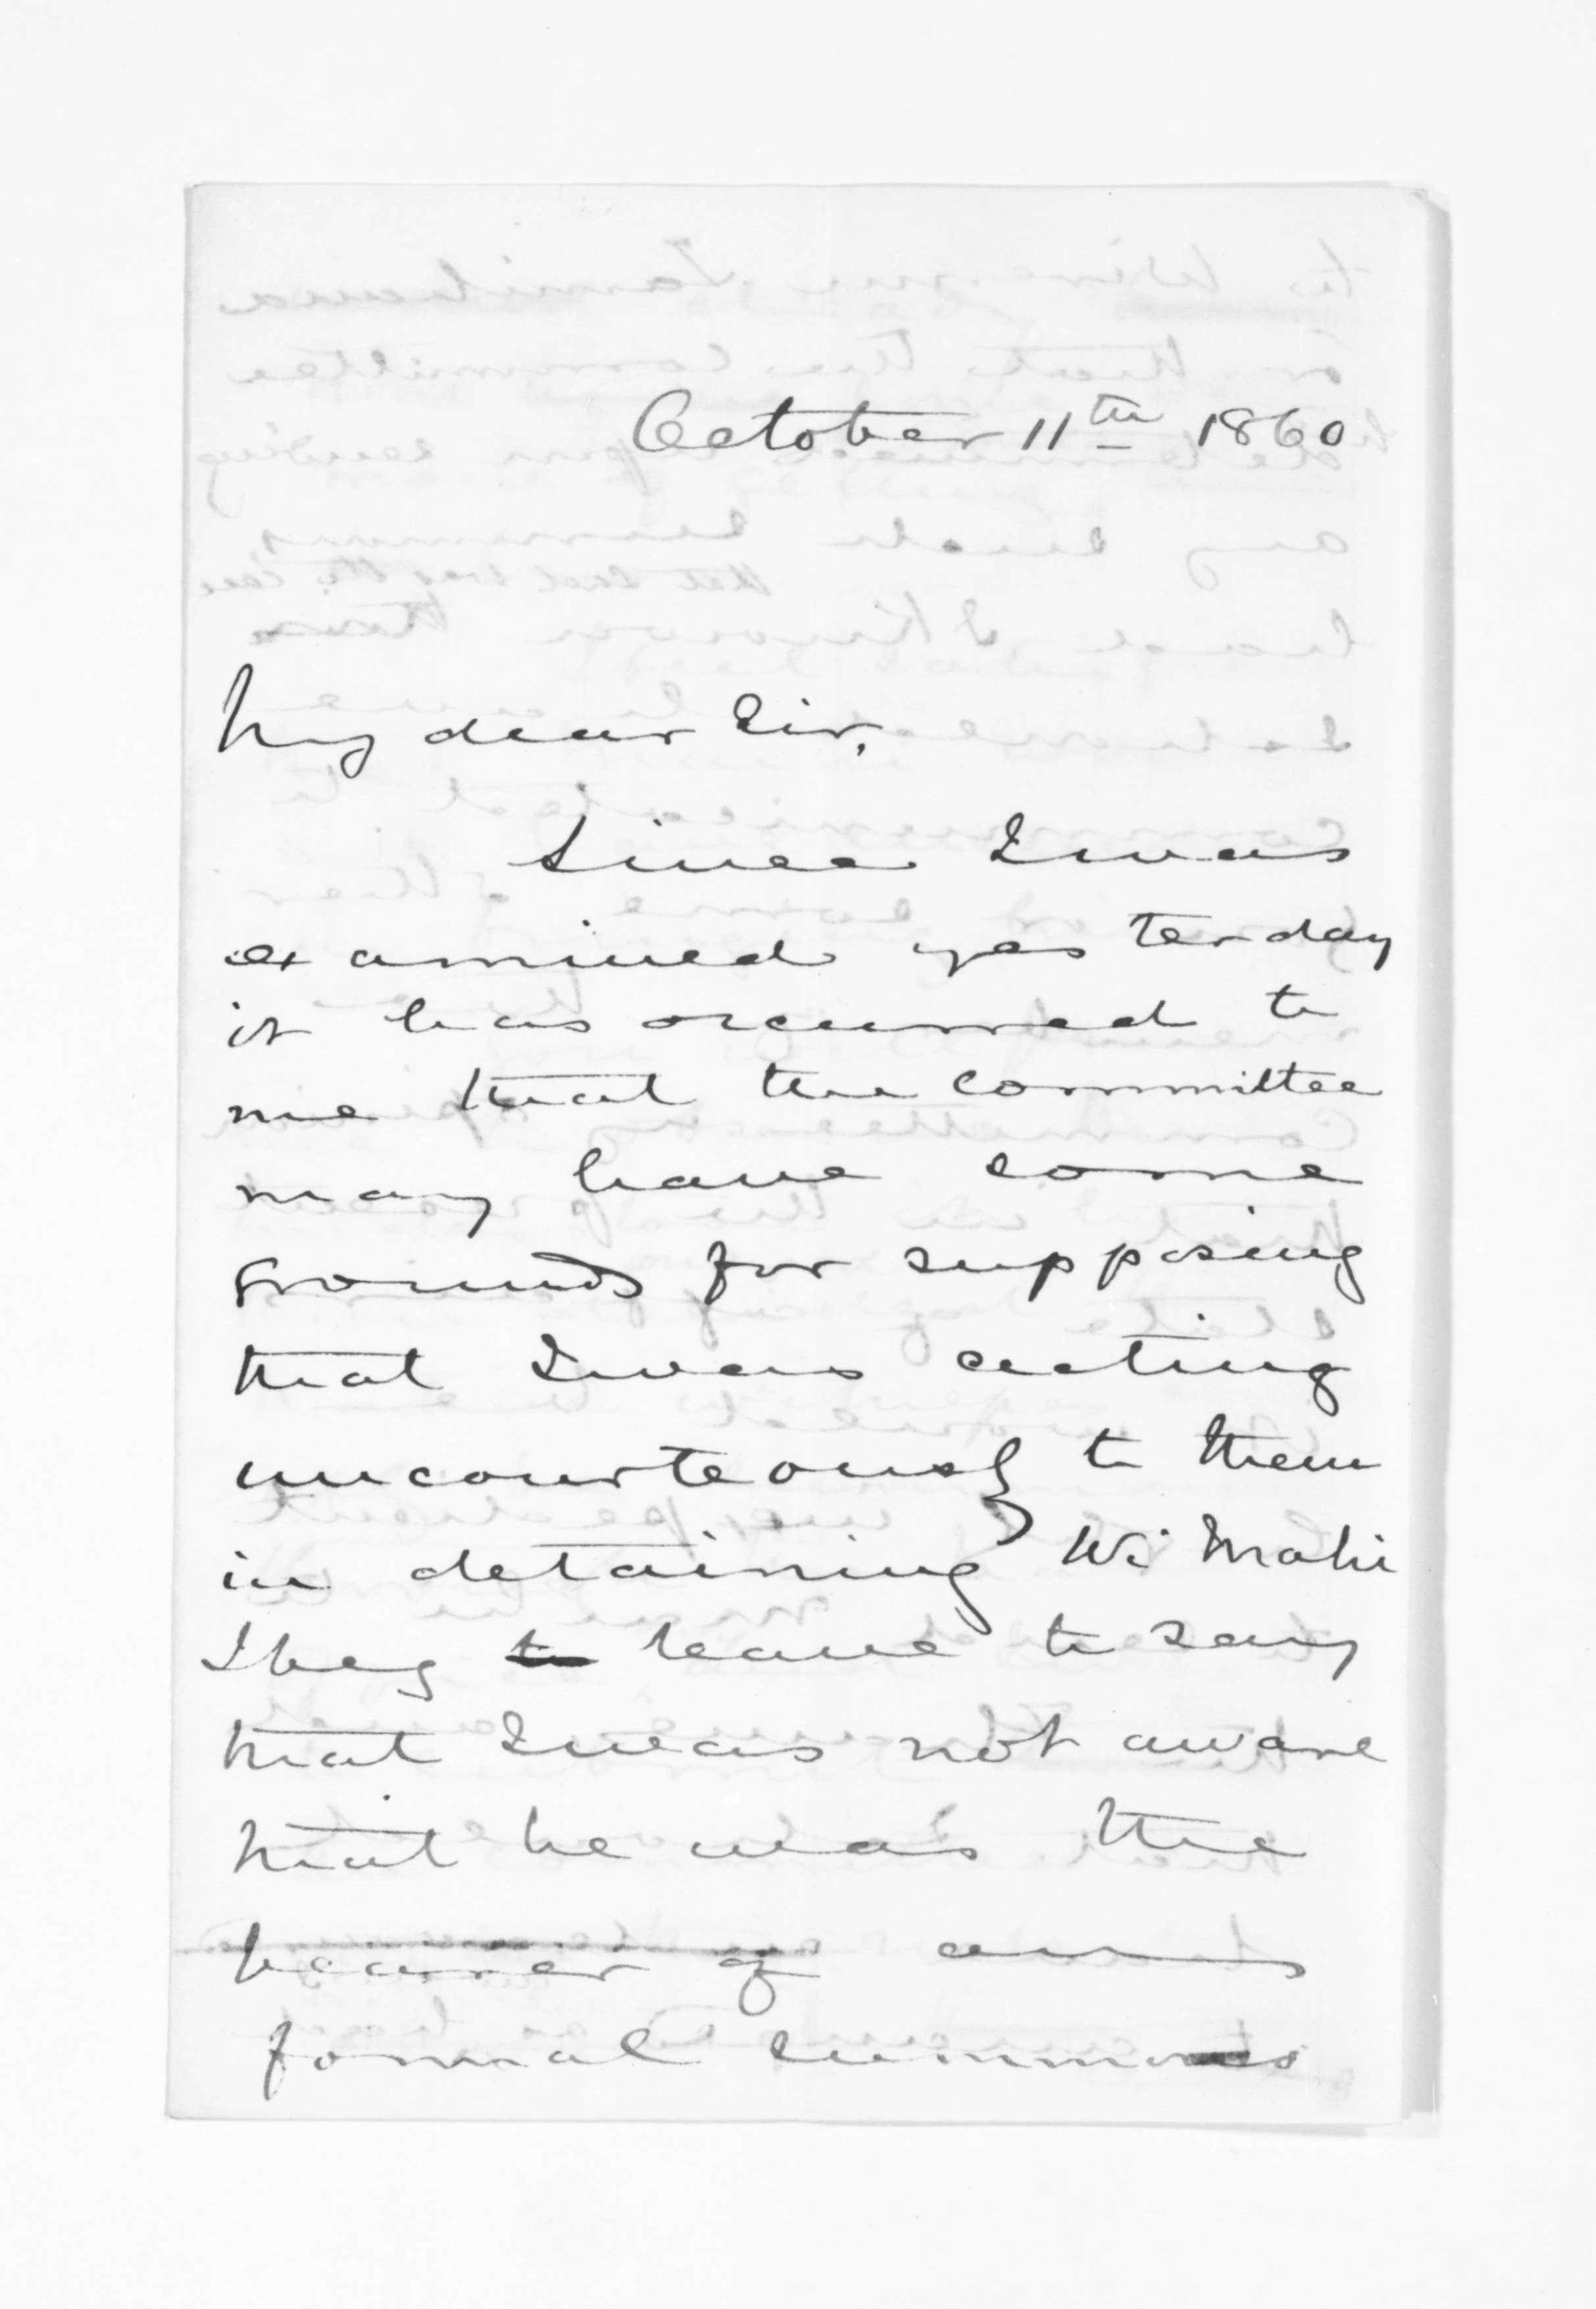 October 11th 1860
My dear Sir,
Since I was
examined yesterday
it has occurred to
me that the Committee
may have some
grounds for supposing
that I was acting
uncourteously to them
in detaining Wi Mahi
I beg to leave to say
that I was not aware
that he was the
bearer of any
formal summons